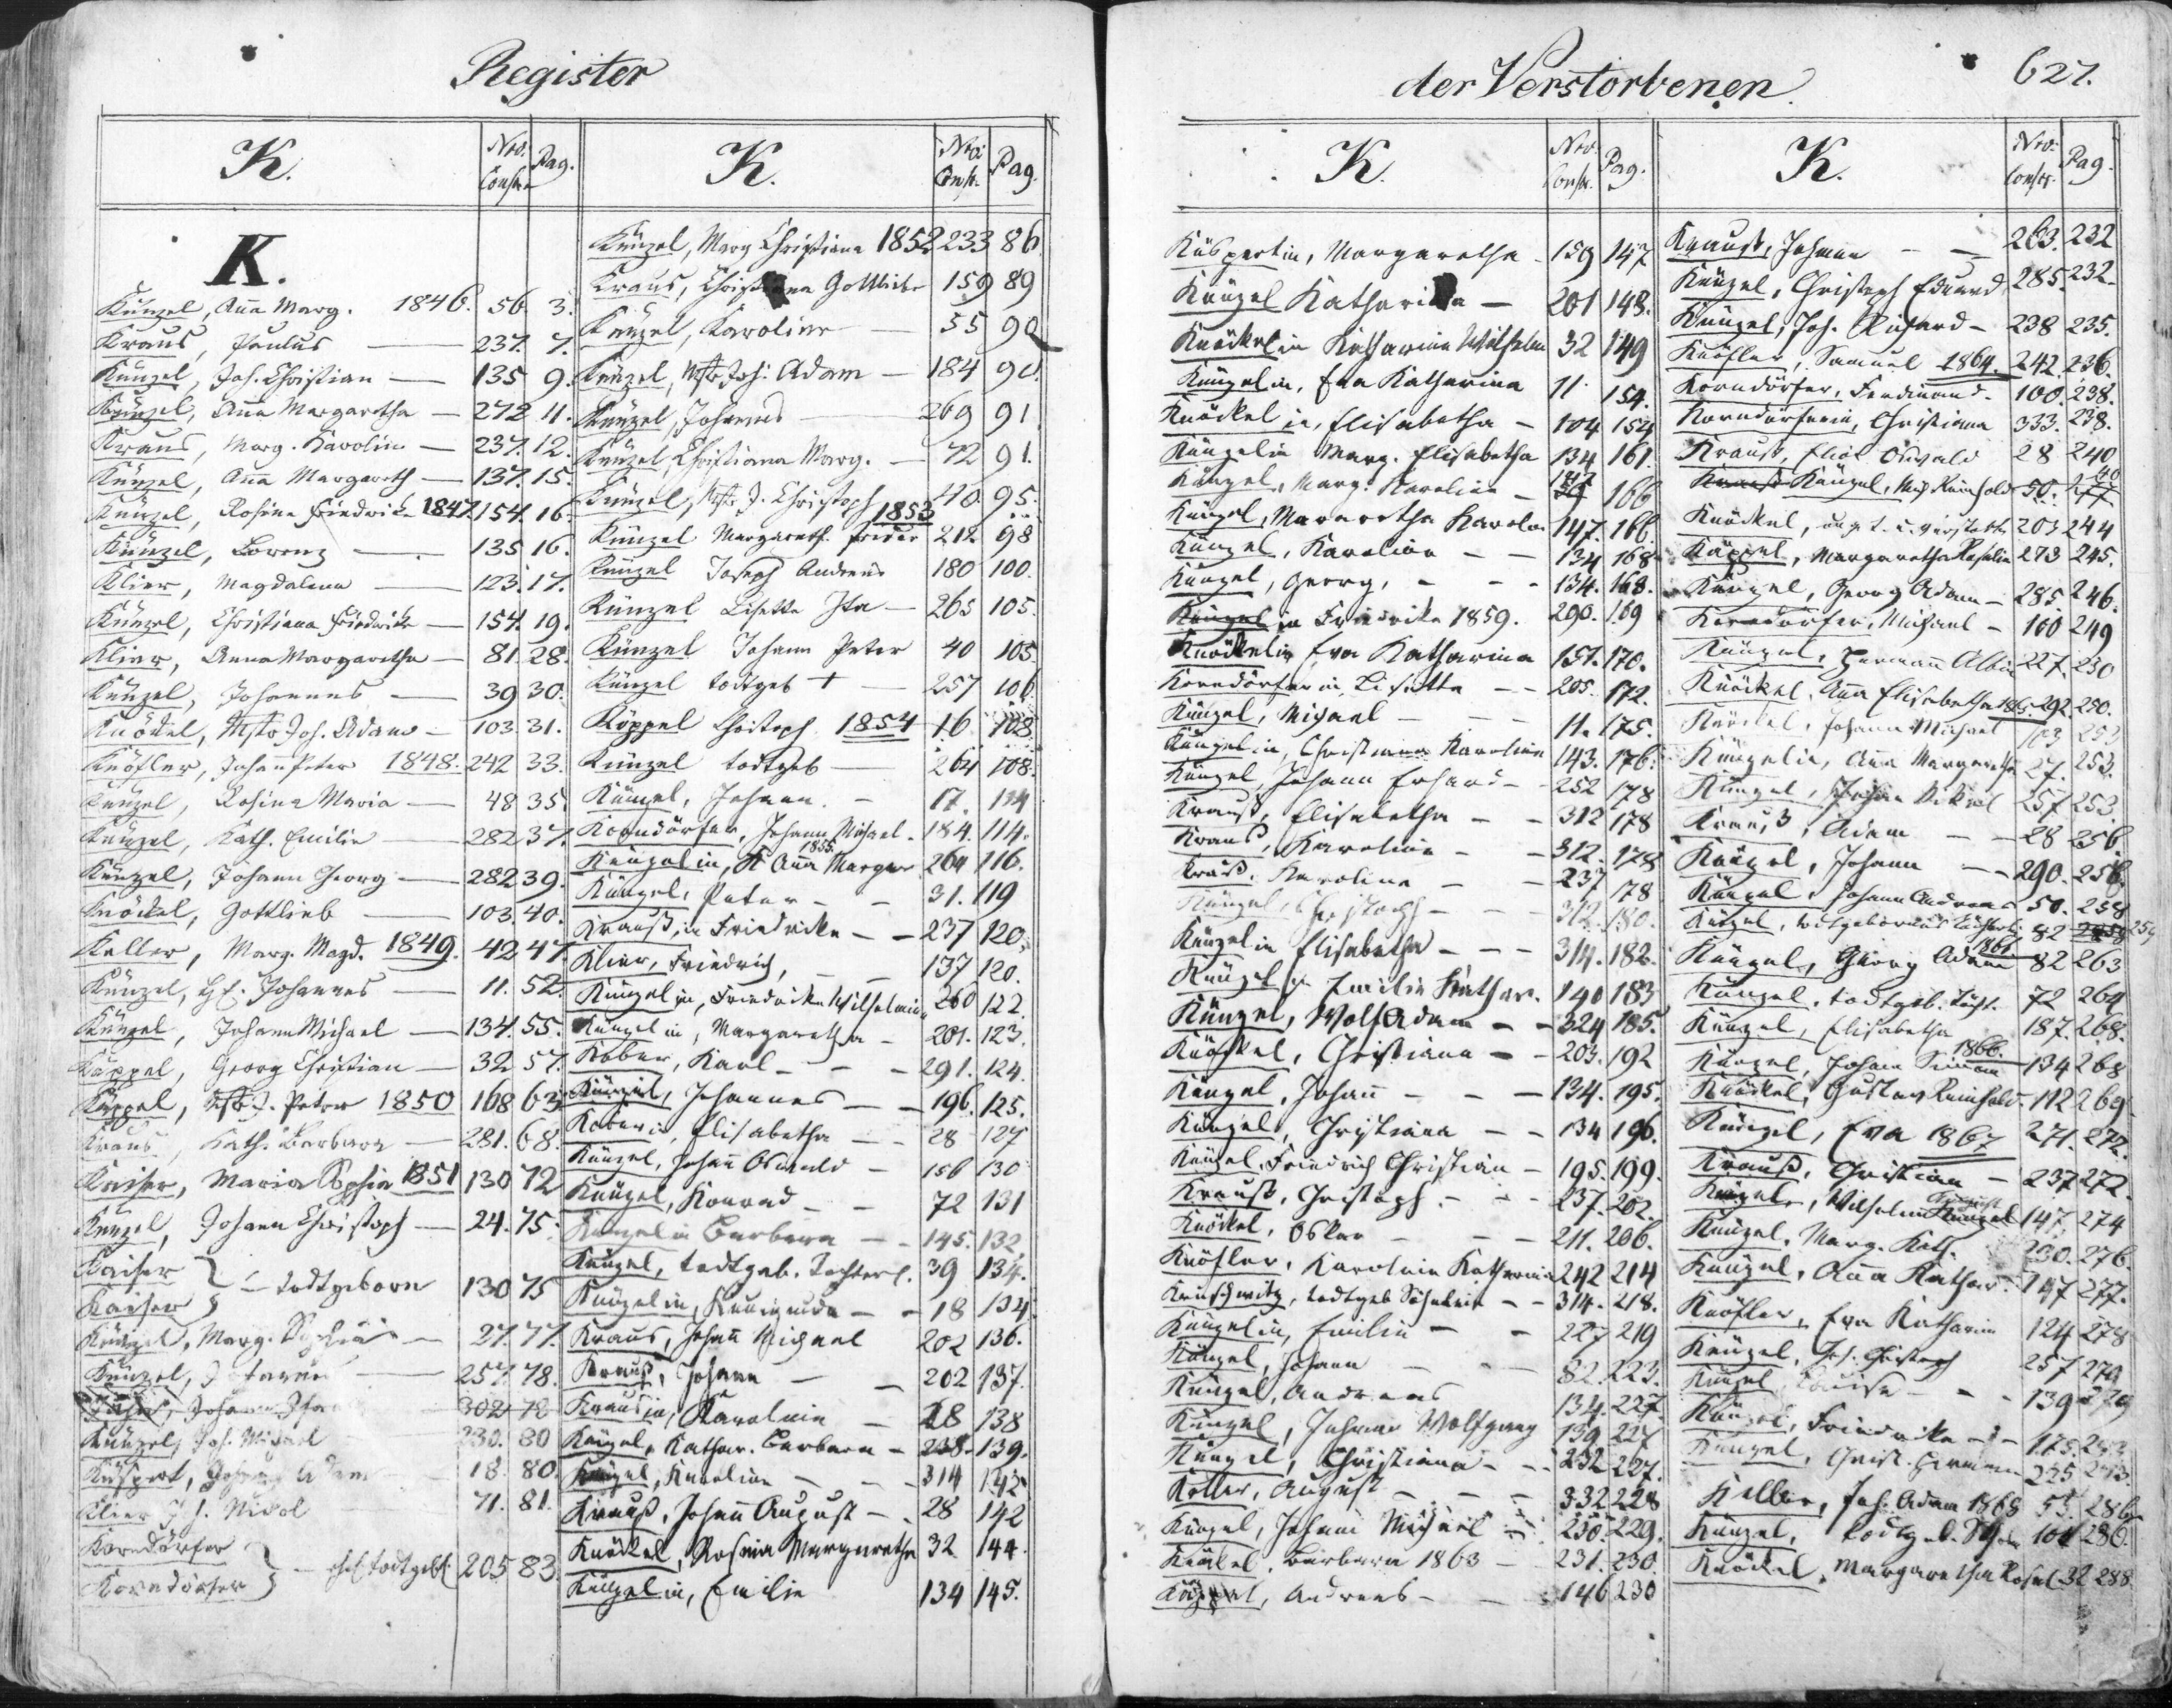 Register
K. Nro. Conscr. Pag.
K.
Künzel, Aña Marg. 1846. 56. 3.
Kraus, Paulus — 237. 7.
Künzel, Joh. Christian — 135 9.
Künzel, Aña Margaretha — 272 11.
Kraus, Marg. Karolin — 237. 12.
Künzel, Aña Margareth — 137. 15.
Künzel, Rosina Friedricke 1847. 154. 16.
Künzel, Lorenz — 135 16.
Klier, Magdalena — 123. 17.
Künzel, Christiana Friedricke — 154. 19.
Klier, Anna Margaretha — 81. 28.
Künzel, Johannes — 39 30.
Knöckel, Mstr Joh. Adam — 103. 31.
Knöfler, Johañ Peter 1848. 242 33.
Künzel, Rosina Maria — 48 35.
Künzel, Kath. Emilie — 282 37.
Künzel, Johann Georg — 282 39.
Knöckel, Gottlieb — 103. 40.
Keller, Marg. Magd. 1849. 42 47.
Künzel, Johannes — 11. 52.
Künzel, Johann Michael — 134. 55.
Käppel, Georg Christian — 32 57.
Käppel, Mstr J. Peter 1850 168 63.
Kraus, Kath. Barbara — 281. 68.
Kaiser, Maria Sophia 1851 130 72
Künzel, Johann Christoph — 24. 75.
Kaiser
Kaiser } — todtgeborn 130 75
Künzel, Marg. Sophia — 27. 77.
Künzel, Johannes — 257. 78.
Johann 302 78
Künzel, Joh. Michael 230. 80
Küspert, Johann Adam 18. 80.
Klier J. Nikol 71. 81.
Korndörfer
Korndörfer } — todtgeb. 205 83
K. Nro. Conscr. Pag.
Künzel, Marg Christiana 1852 233 86
Kraus, Christiana Gottliebe 159 89
Künzel, Karoline — 55 90
Künzel, Mstr Joh. Adam — 184 90.
Künzel, Johannes 269 91
Künzel, Christiana Marg. — 72 91.
Künzel, Mstr J. Christoph 40 95.
1853
Künzel Margareth. Frieder 212 98
Künzel Joseph Andreas 180 100.
Künzel Lisette Ida — 265 105.
Künzel Johann Peter 40 105
Künzel todtgeb + — 257 106
Köppel Christoph 1854 16 108
Künzel todtgeb — 264 108.
Künzel, Johann. — 17. 114
Korndörfer, Johann Michael - 184. 114.
1855.
Künzelin, Aña Margar 264 116.
Künzel, Peter — 31. 119
Kraußin Friedricke — 237 120.
Klier, Friedrich, 137 120.
Künzelin, Friedricke Wilhelmine 260 122.
Künzelin, Margaretha — 201. 123.
Kober, Karl — 291. 124.
Künzel, Johannes — 196. 125.
Koberin, Elisabetha — 28 127
Künzel, Johañ Oswald — 156 130
Künzel, Konrad — 72 131
Künzelin Barbara — 145. 132.
Künzel, todtgeb. Töchterl. 39 134.
Künzelin, Kunigunda — 18 134
Kraus, Johañ Michael 202 136.
Krauß, Johann — 202 137.
Krausin, Karolnie — 28 138
Künzel, Kathar. Barbara — 238. 139.
Künzel, Karoline — 314 142
Krauß, Johañ August — 28 142
Knöckel, Rosina Margaretha 32 144.
Künzelin, Emilie 134 145.
der Verstorbenen.
627.
K. Nro. Conscr. Pag.
Küspertin, Margaretha 159 147
Künzel Katharina — 201 148.
Knöckelin Katharina Wilhelm 32 149
Künzelin, Eva Katharina 11 154.
Knöckelin, Elisabetha — 104 154
Künzelin Marg. Elisabetha 134 161.
Künzel, Marg. Karoline — 147 166
Künzel, Margaretha Karolin 147. 166.
Künzel, Karoline — 134 168
Künzel, Georg, — 134. 168.
Künzelin Friedricke 1859. 290. 169
Knöckelin Eva Katharina 157. 170.
Korndörferin, Lisetta — 205. 172.
Künzel, Michael — 11. 175.
Künzelin, Christiana Karoline 143. 176.
Künzel Johann Erhard — 252 178
Krauß, Elisabetha — 312 178
Kraus, Karoline — 312. 178
Krauß, Karolina — 237 178
Künzel, Christoph — 312. 180.
Künzelin Elisabetha — 314. 182.
Künzelin Emilie Kathar. 140 183
Künzel, Wolf Adam — 324 185.
Knöckel, Christiana — 203. 192
Künzel, Johañ — 134. 195.
Künzel, Christiana — 134 196.
Künzel, Friedrich Christian — 195. 199.
Krauß, Christoph — 237. 202.
Knöckel, Oskar — 211. 206.
Knöfler, Karolnie Katharina 242 214
todtgeb Söhnlein — 314. 218.
Künzelin, Emilie — 227 219
Künzel, Johann — 82. 223.
Künzel, Andreas 134. 227.
Künzel, Johann Wolfgang 139 227
Künzel, Christiana — 232 227.
Köller, August — 332 228
Künzel, Johann Michael 230. 229.
Knöckel, Barbara 1863 — 231. 230.
Käppel, Andreas — 146 230
K. Nro. Conscr. Pag.
Krauß, Johann — 263. 232
Künzel, Christoph Eduard 285. 232.
Künzel, Joh. Richard — 238 235.
Knöfler, Samuel 1864. 242 236.
Korndörfer, Ferdinand. 100. 238.
Korndörferin, Christiana 333. 238.
Krauß, Elias Oswald 28 240
Künzel, Reinhold 50. 240
Knöckel, 203 244
Käppel, Margaretha Rosalie 273 245.
Künzel, Georg Adam — 285 246.
Korndörfer, Michael — 100 249
Künzel, Hermañ Albin 227. 250
Knöckel, Aña Elisabetha 1865. 292 250.
Knöckel, Johann Michael 103 253
Künzelin, Aña Margaretha 27. 253.
Künzel, Johann Nikol 257 253.
Krauß, Adam — 28 256.
Künzel, Johann — 290. 256.
Künzel, Johann Andreas 50. 258
Künzel, todtgebornes Töchterl. 82 259
1866.
Künzel, Georg Adam 82 263
Künzel, todtgeb. Töcht. 72 264
Künzel, Elisabetha 187. 268.
1866.
Künzel, Johann Simon 134 268
Knöckel, Gustav Reinhold. 112 269
Künzel, Eva 1867 271. 272.
Krauß, Christian — 237 272.
Künzel, Wilhelm August 147. 274
Künzel, Marg. Kath. 230. 276.
Künzel, Aña Kathar. 147 277.
Knöfler, Eva Katharine 124 278
Künzel, Joh. Christoph 257 279
Künzel Louise — 139 279
Künzel, Friedricke — 175. 283
Künzel, Christ. Hermann 225 283
Keller, Joh. Adam 1868 55. 286
Künzel, todtgeb. Sohn 101 286.
Knöckel, Margaretha Rosal 32 288